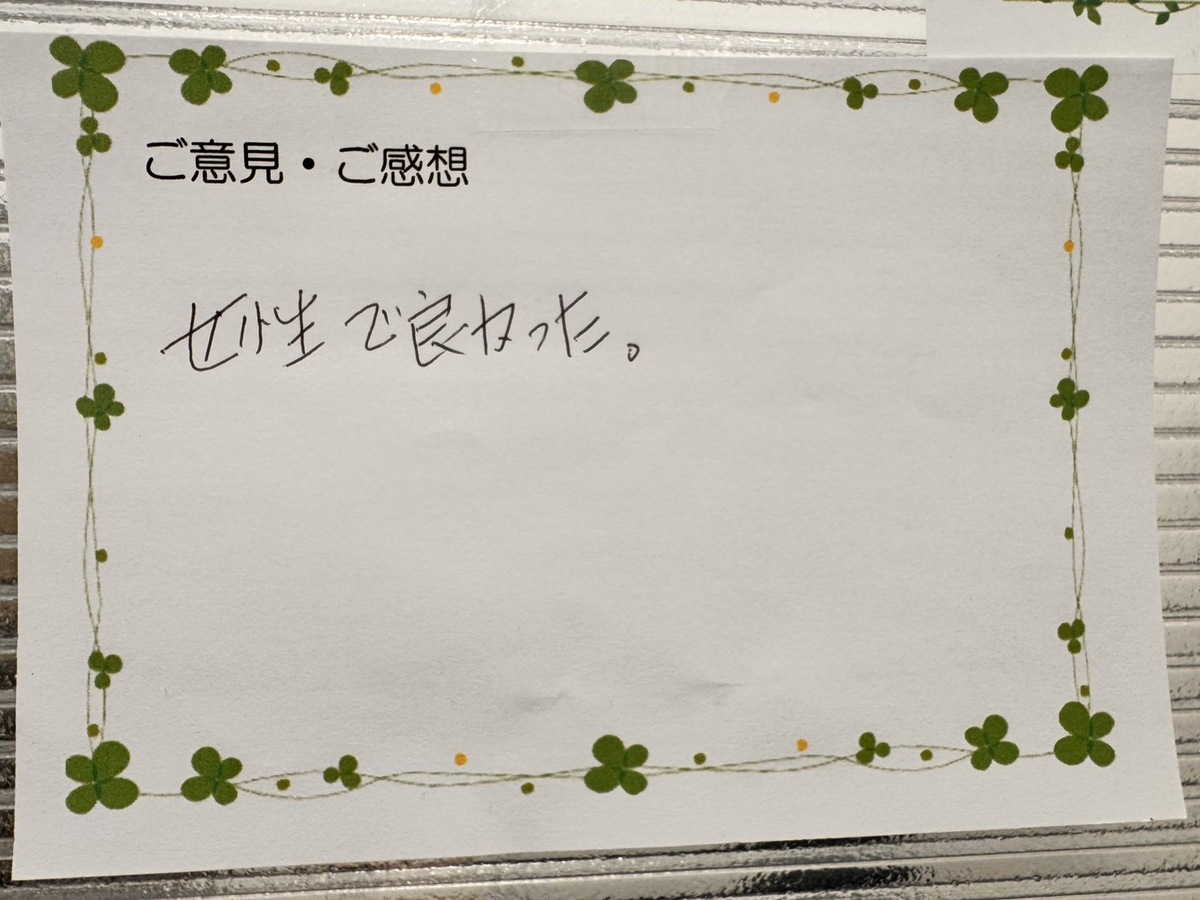 ご意見・ご感想
女性で良かった。